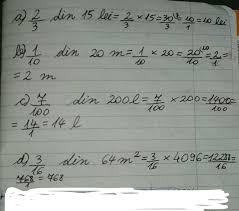 a) 2/3 din 15 lei = 2/3 × 15 = 30/3 = 10/1 = 10 lei
b) 1/10 din 20 m = 1/10 × 20 = 20/10 = 2/1 =
= 2 m
c) 7/100 din 200 l = 7/100 × 200 = 1400/100 =
= 14/1 = 14 l
d) 3/16 din 64 m² = 3/16 × 4096 = 12288/16 =
768/1 = 768